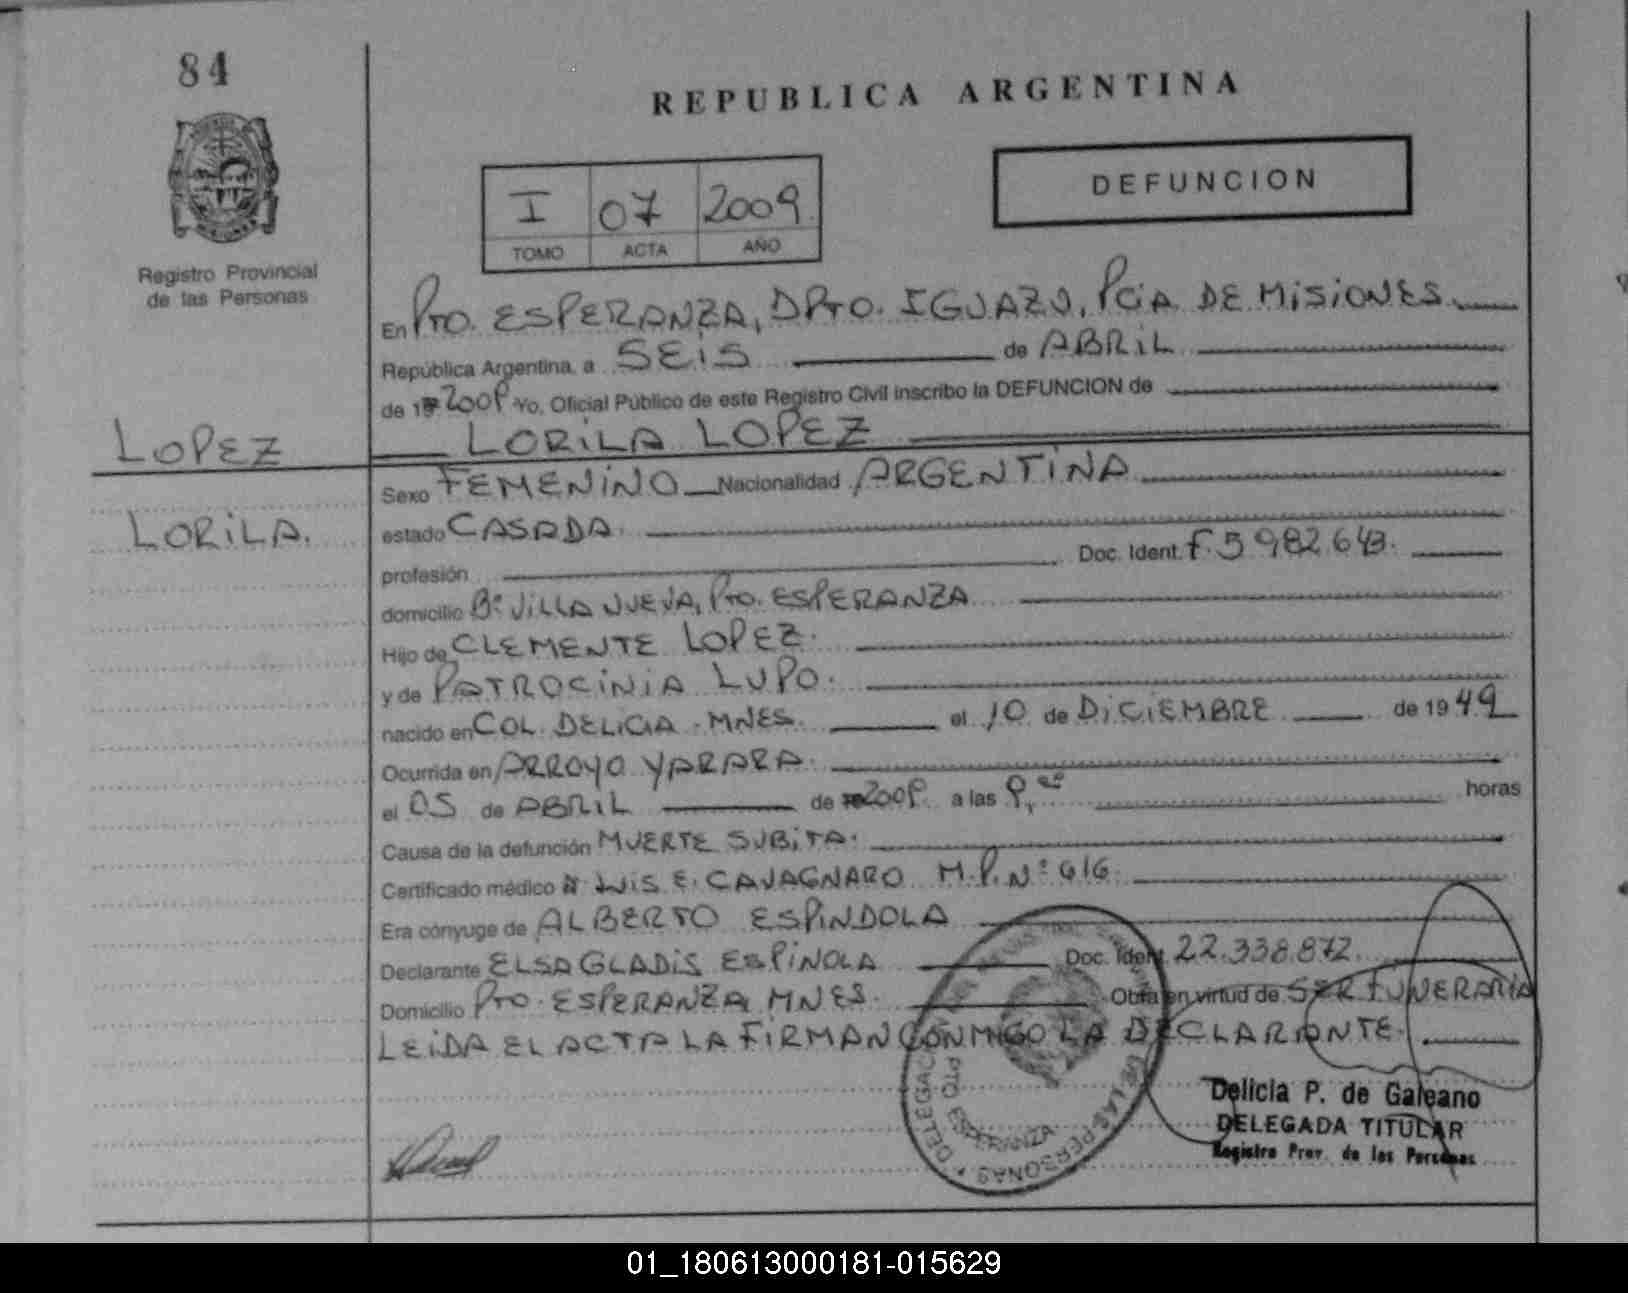 84
REPUBLICA ARGENTINA
DEFUNCION
I 07 2009
TOMO ACTA AÑO
Registro Provincial
de las Personas
En Pto. ESPERANZA, DPTO. IGUAZU, PCiA DE MiSiONES.
República Argentina, a SEiS de ABRiL
de 19 2009 Yo, Oficial Público de este Registro Civil inscribo la DEFUNCION de
LORiLA LOPEZ
LOPEZ
LORiLA.
Sexo FEMENiNO Nacionalidad ARGENTiNA
estado CASADA.
profesión Doc. Ident. F. 5982643.
domicilio Bº ViLLA NUEVA, Pto. ESPERANZA
Hijo de CLEMENTE LOPEZ.
y de PATROCiNiA LUPO.
nacido en COL. DELiCiA - MNES. el 10 de DiCiEMBRE de 19 49
Ocurrida en ARROYO YARARA.
el 05 de ABRiL de 2009 a las 9,00 horas
Causa de la defunción MUERTE SUBiTA.
Certificado médico LUiS E. CAVAGNARO M.P. Nº 616.
Era cónyuge de ALBERTO ESPiNDOLA
Declarante ELSA GLADiS ESPiNOLA Doc. Ident. 22.338.872.
Domicilio Pto. ESPERANZA MNES. Obra en virtud de SER FUNERARiA
LEiDA EL ACTA LA FiRMAN CONMiGO LA DECLARANTE.
PTO. ESPERANZA
DE LAS PERSONAS
Delicia P. de Galeano
DELEGADA TITULAR
Registro Prov. de las Personas
01_180613000181-015629